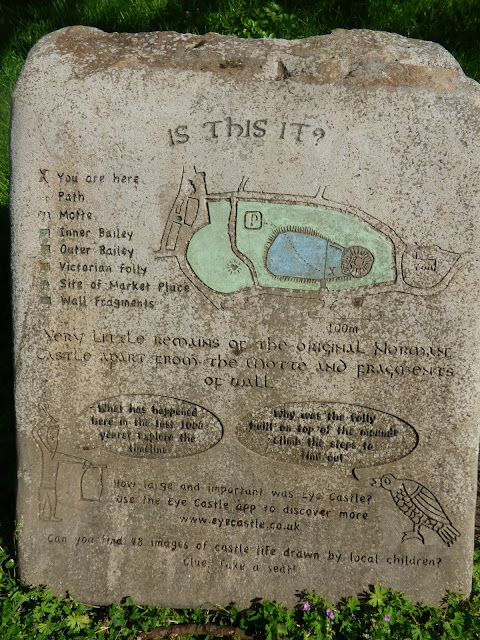 IS THIS IT?
X You are here
Path
Motte
Inner Bailey
Outer Bailey
Victorian Folly
Site of Market Place
Wall Fragments
P
100m
Very little remains of the original Norman
Castle apart from the Motte and fragments
of wall
What has happened
here in the last 1000
years? Explore the
timeline
Why was the folly
built on top of the mound?
Climb the steps to
find out
How large and important was Eye Castle?
Use the Eye Castle app to discover more
www.eyecastle.co.uk
Can you find 48 images of castle life drawn by local children?
Clue: Take a seat!